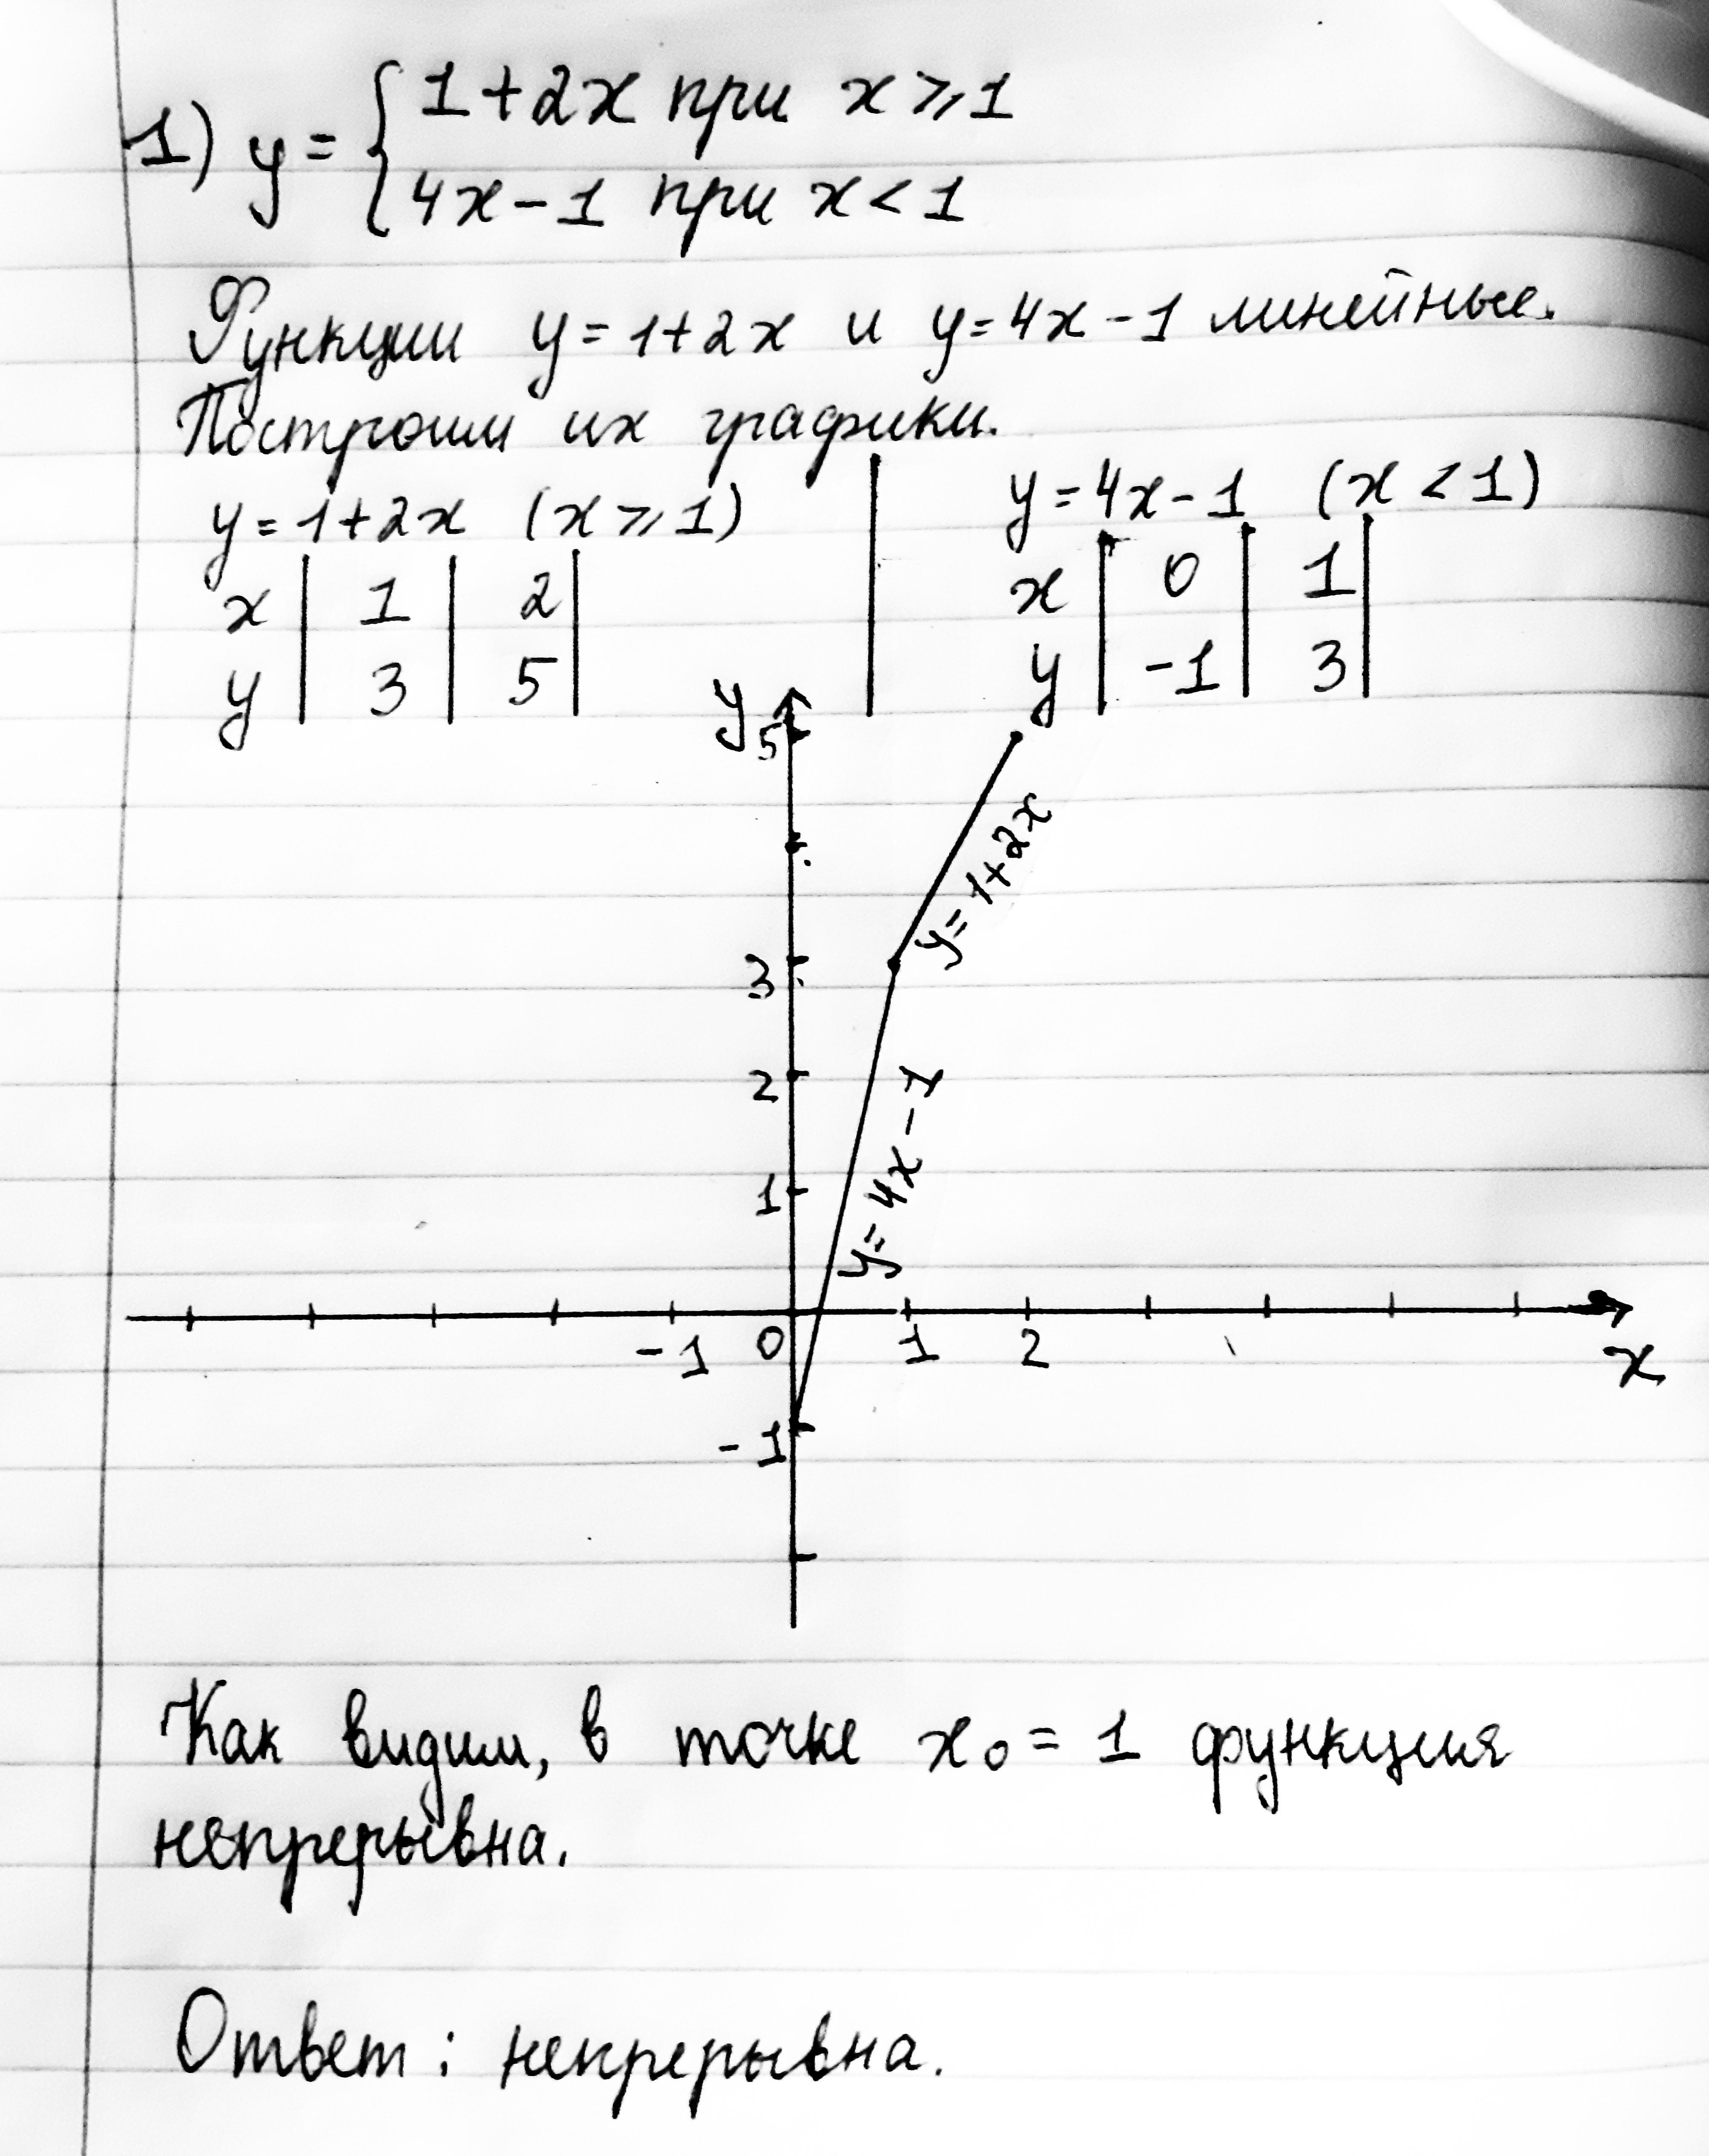 1) y = { 1+2x при x ⩾ 1
4x-1 при x < 1
Функции y=1+2x и y=4x-1 линейные.
Построим их графики.
y=1+2x (x ⩾ 1)
x | 1 | 2 |
y | 3 | 5 |
y=4x-1 (x < 1)
x | 0 | 1 |
y | -1 | 3 |
y
5
y=1+2x
3
2
y=4x-1
1
-1 0 1 2
x
-1
Как видим, в точке x₀ = 1 функция
непрерывна.
Ответ: непрерывна.